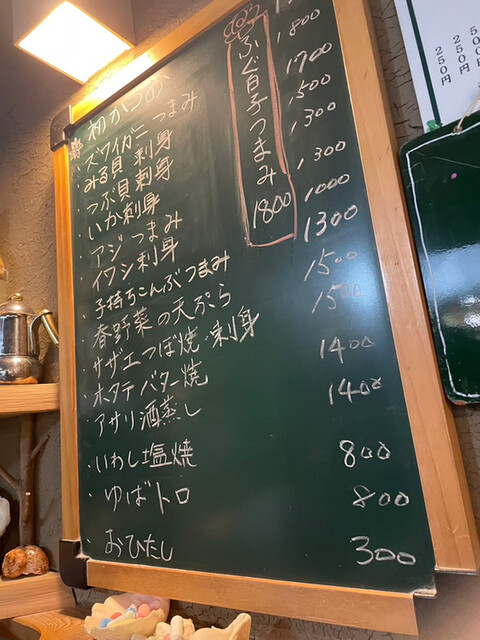 初かつお
・ズワイガニつまみ 1800
・みる貝刺身 1700
・つぶ貝刺身 1500
・いか刺身 1300
・アジつまみ 1300
・イワシ刺身 1000
・子持ちこんぶつまみ 1300
・春野菜の天ぷら 1500
・サザエつぼ焼・刺身 1500
・ホタテバター焼 1400
・アサリ酒蒸し 1400
・いわし塩焼 800
・ゆばトロ 800
・おひたし 300
ふぐ白子つまみ 1800
250円
250円
250円